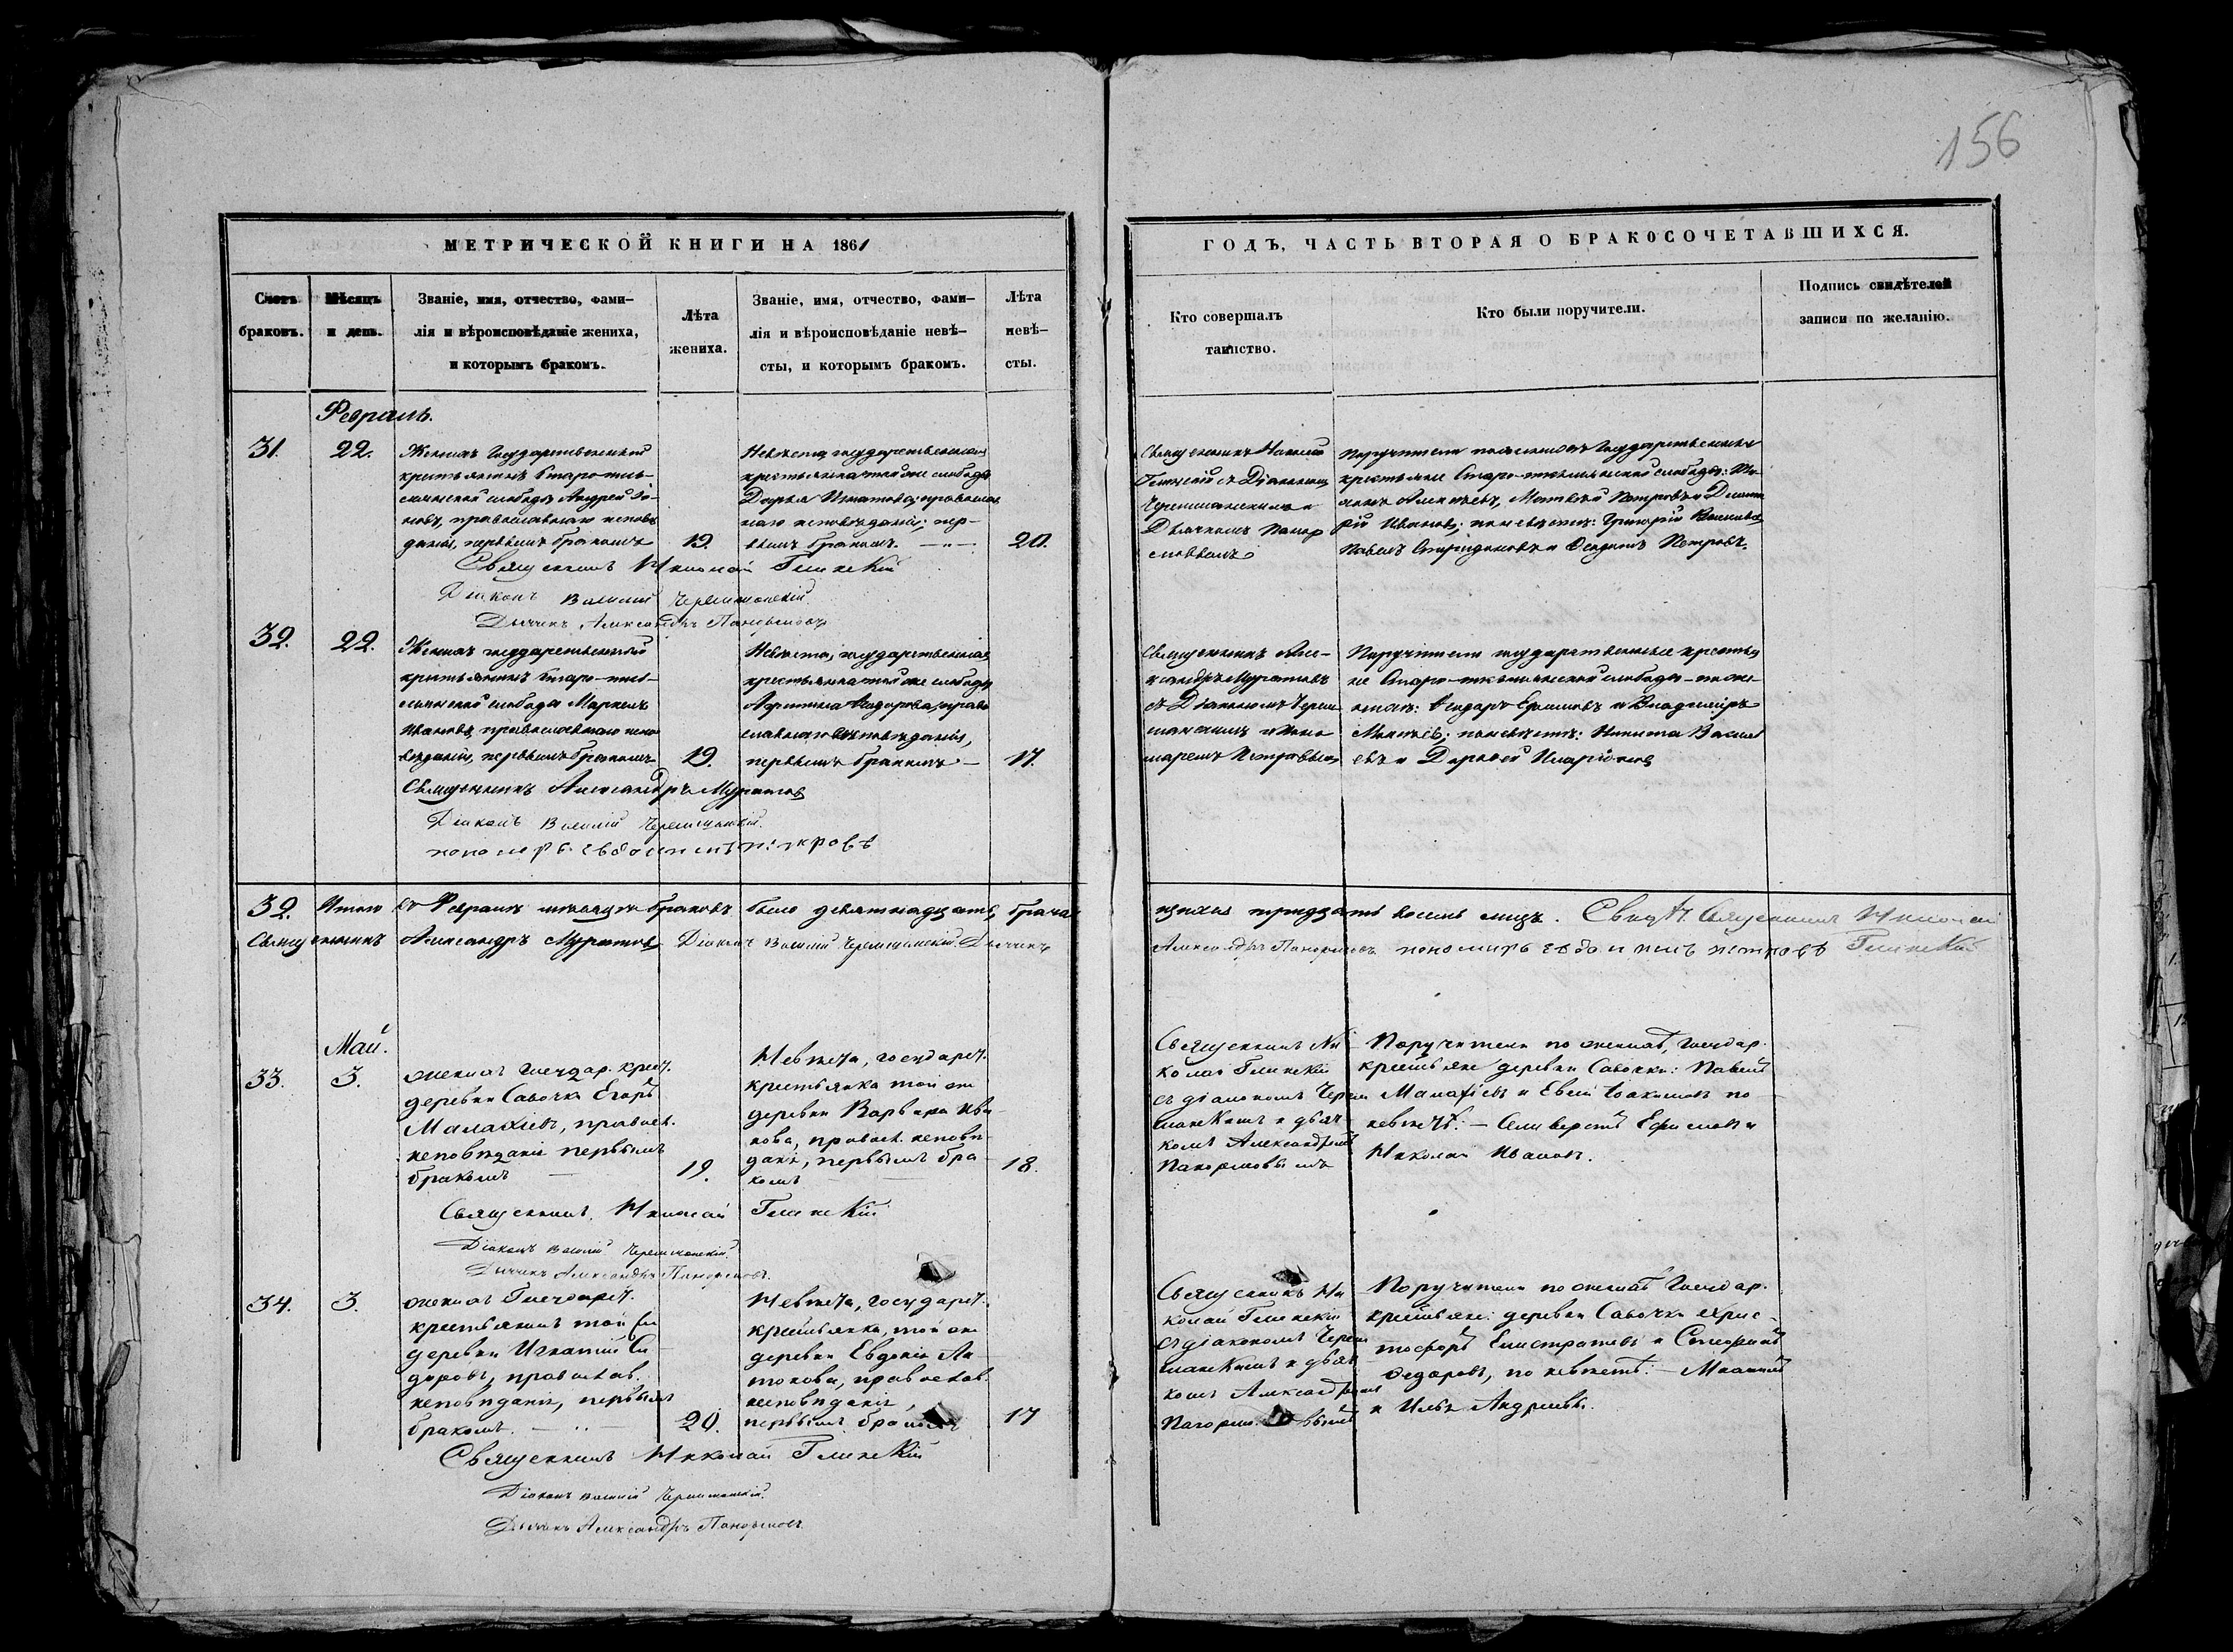 156
МЕТРИЧЕСКОЙ КНИГИ НА 1861
ГОДЪ, ЧАСТЬ ВТОРАЯ О БРАКОСОЧЕТАВШИХСЯ.
Счетъ
браковъ.
Мѣсяцъ
и день.
Званіе, имя, отчество, фами-
лія и вѣроисповѣданіе жениха,
и которымъ бракомъ.
Лѣта
жениха.
Званіе, имя, отчество, фами-
лія и вѣроисповѣданіе невѣ-
сты, и которымъ бракомъ.
Лѣта
невѣ-
сты.
Кто совершалъ
таинство.
Кто были поручители.
Подпись свидѣтелей
записи по желанію.
Февраль.
31.
22.
Женихъ Государственный
крестьянинъ Старо-
слободы Андрей
православнаго исповѣ
данія, первымъ бракомъ
19.
Невѣста государственная
крестьянка той же слободы
Дарья Игнатова, православ
наго исповѣданія, пер-
вымъ бракомъ.
20.
Священникъ Николай
Глинскій съ Діакономъ
Черемшанскимъ и
Дьячкомъ Панор
мовымъ
Поручители по женихѣ Государственные
крестьяне Старо- слободы:
Алексѣевъ, Матвѣй Петровъ и Дмит
рій Ивановъ; по невѣстѣ: Григорій Васильевъ
Павелъ Спиридоновъ и Петровъ.
Священникъ Николай Глинскій
Діаконъ Василій Черемшанскій
Дьячекъ Александръ Панормовъ
32.
22.
Женихъ государственный
крестьянинъ Старо-
слободы Маркелъ
Ивановъ, православнаго испо
вѣданія, первымъ бракомъ
19.
Невѣста, государственная
крестьянка той же слободы
Ѳедорова, право
славнаго исповѣданія,
первымъ бракомъ
17.
Священникъ Але-
ксандръ Муратовъ
съ Діакономъ Черем
шанскимъ и Поно
маремъ Петровымъ
Поручители государственные крестья
не Старо- слободы по же-
нихѣ: Ѳедоръ Ефимовъ и Владиміръ
по невѣстѣ: Никита Васил
евъ и Дорофей Иларіонов
Священникъ Александръ Муратовъ
Діаконъ Василій Черемшанскій.
пономарь Евдокимъ петровъ
32. Итого въ Февралѣ мѣсяцѣ браковъ было девятнадцать, брача
щихся тридцать восемь лицъ. Свид. Священникъ Николай
Священникъ Александръ Муратовъ Діаконъ Василій Черемшанскій. Дьячекъ
Александръ Панормовъ пономарь Евдокимъ петровъ Глинскій
Май.
33.
3.
женихъ Государ. крест.
деревни Савочки Егоръ
Малахіевъ, правосл.
исповѣданія первымъ
бракомъ
19.
Невѣста, государст.
крестьянка той же
деревни Варвара Ива
нова, правосл. исповѣ
данія, первымъ бра
комъ
18.
Священникъ Ни
колай Глинскій
съ діакономъ Черем
шанскимъ и дьяч
комъ Александромъ
Панормовымъ
Поручители по женихѣ, Государ.
крестьяне деревни Савочки: Павелъ
Малахіевъ и Евсей Іоакимовъ по
невѣстѣ: Селиверстъ Ефимовъ и
Николай Ивановъ.
Священникъ Николай Глинскій
Діаконъ Василій Черемшанскій.
Дьячекъ Александръ Панормовъ.
34.
3.
женихъ Государст.
крестьянинъ той же
деревни Игнатій Си
доровъ, православ.
исповѣданія, первымъ
бракомъ.
20.
Невѣста, государст.
крестьянка, той же
деревни Евдокія Ан
тонова, православ.
исповѣданія,
первымъ бракомъ
17
Священникъ Ни
колай Глинскій
съ діакономъ Черем
шанскимъ и дьяч
комъ Александромъ
Панормовымъ
Поручители по женихѣ Государ.
крестьяне: деревни Савочки Хрис-
тофоръ Елистратовъ и
Ѳедоровъ, по невѣстѣ:
и Илья Андреевы.
Священникъ Николай Глинскій
Діаконъ Василій Черемшанскій.
Дьячекъ Александръ Панормовъ